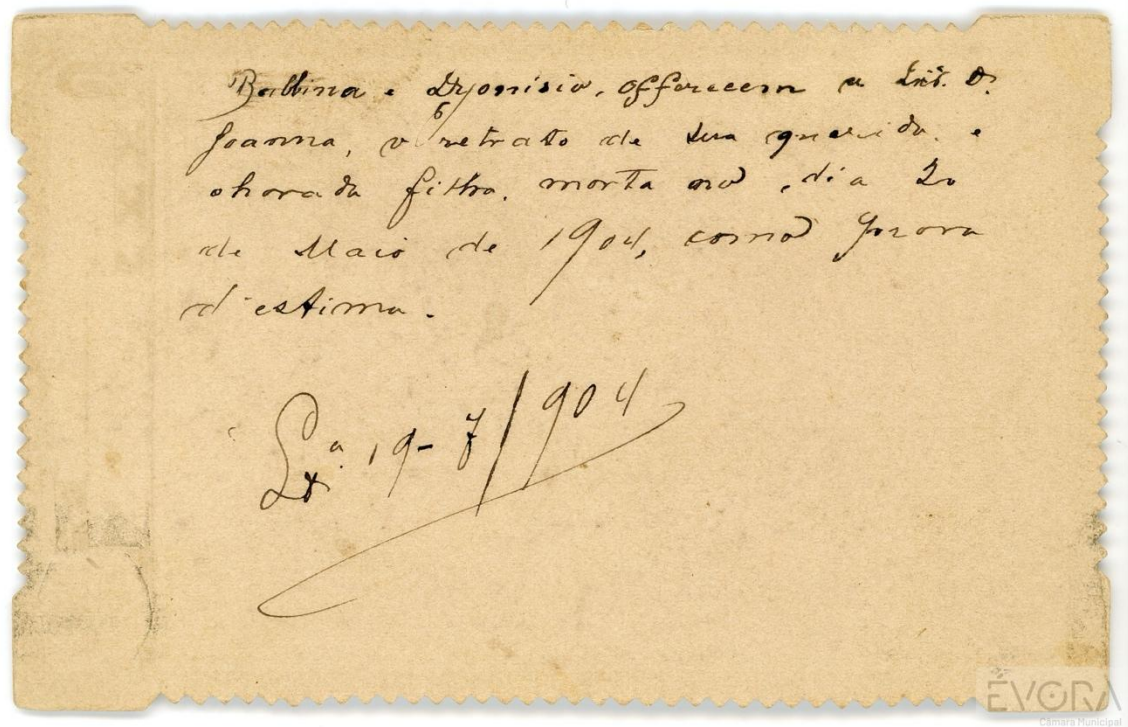 Balbina e Dyonisio, offerecem a D.
Joanna, o retrato de sua querida e
chorada filha, morta no dia 20
de Maio de 1904, como prova
d'estima.
Lxª 19-7/904
ÉVORA
Câmara Municipal